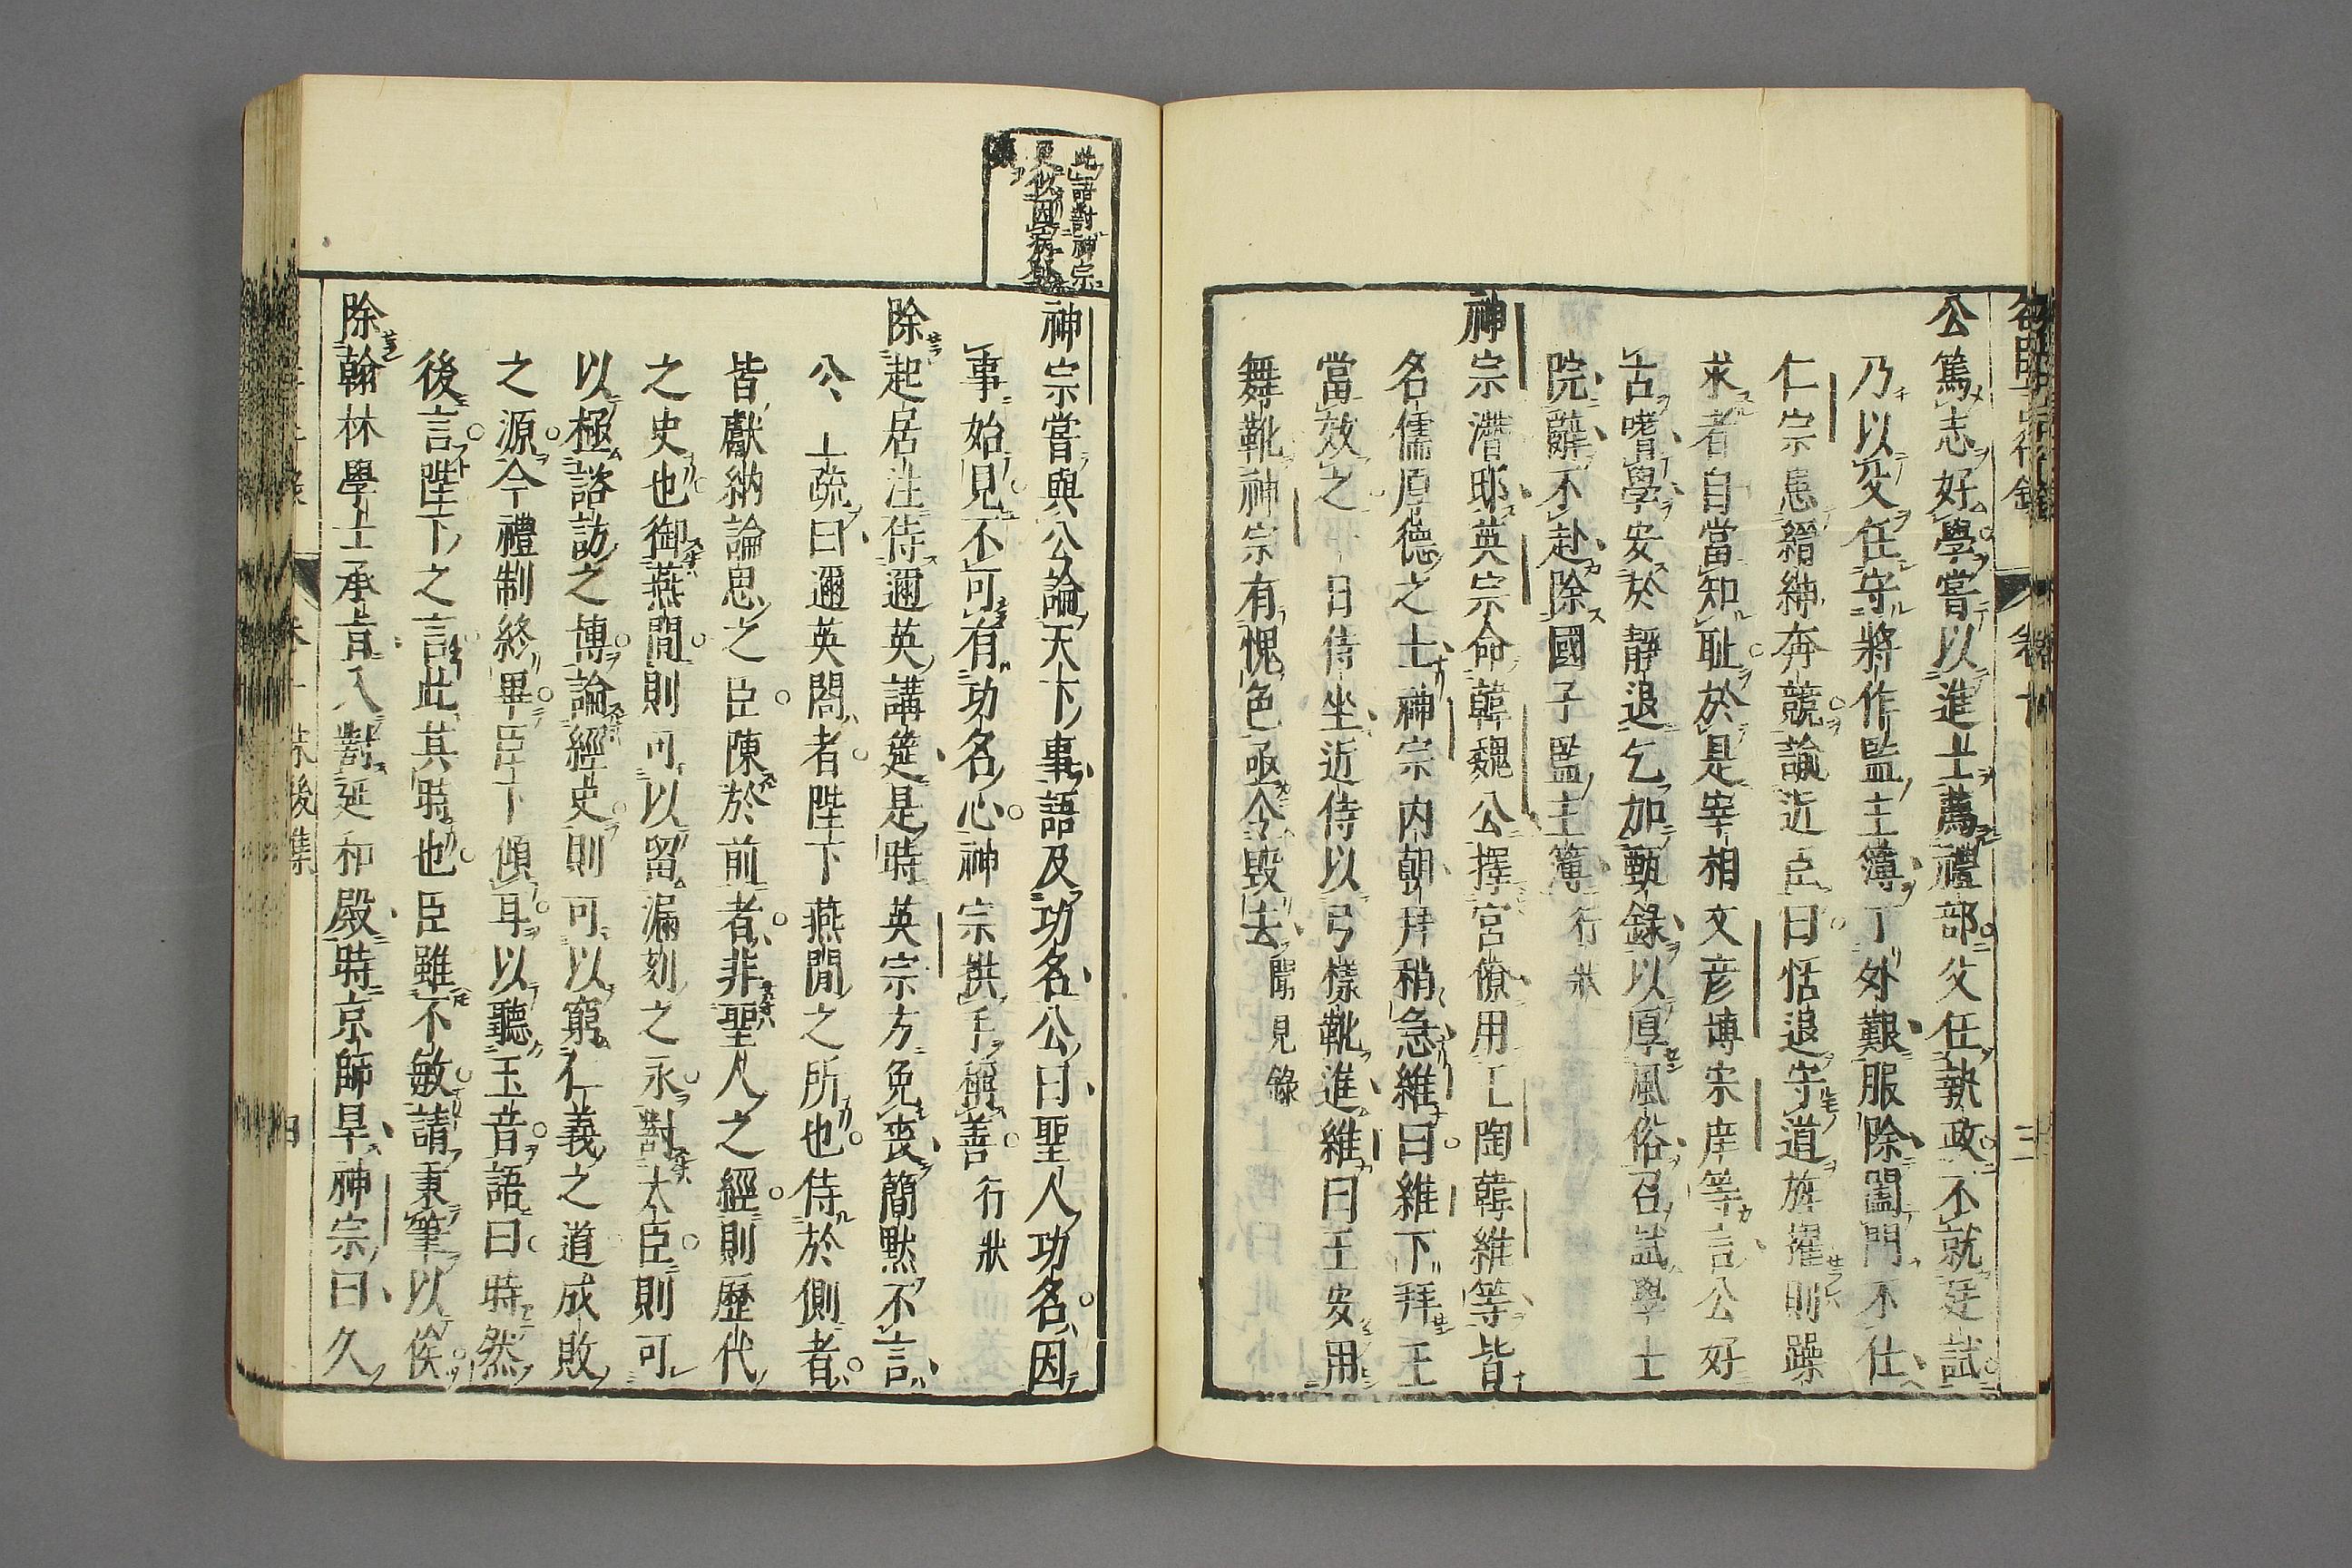 公篤志好學嘗以進士薦禮部父任執政不就廷試
乃以父任守將作監主簿丁外艱服除闔門不仕
仁宗患縉紳奔競諭近臣曰恬退守道旌擢則躁
求者自當知恥於是宰相文彦博宋庠等言公好
古嗜學安於靜退乞加甄錄以厚風俗召試學士
院辭不赴除國子監主簿行狀
神宗潛邸英宗命韓魏公擇宮僚用王陶韓維等皆
名儒厚德之士神宗内朝拜稍急維曰維下拜王
當效之一日侍坐近侍以弓樣靴進維曰王安用
舞靴神宗有愧色亟令毀去聞見錄
此語對神宗
更似因病
神宗嘗與公論天下事語及功名公曰聖人功名因
事始見不可有功名心神宗拱手稱善行狀
除起居注侍邇英講筵是時英宗方免喪簡默不言
公上疏曰邇英閣者陛下燕閒之所也侍於側者
皆獻納論思之臣陳於前者非聖人之經則歷代
之史也御燕閒則可以留漏刻之永對大臣則可
以極諮訪之博論經史則可以窮仁義之道成敗
之源今禮制終畢臣下傾耳以聽玉音語曰時然
後言陛下之言此其時也臣雖不敏請秉筆以俟
除翰林學士承旨入對延和殿時京師旱神宗曰久